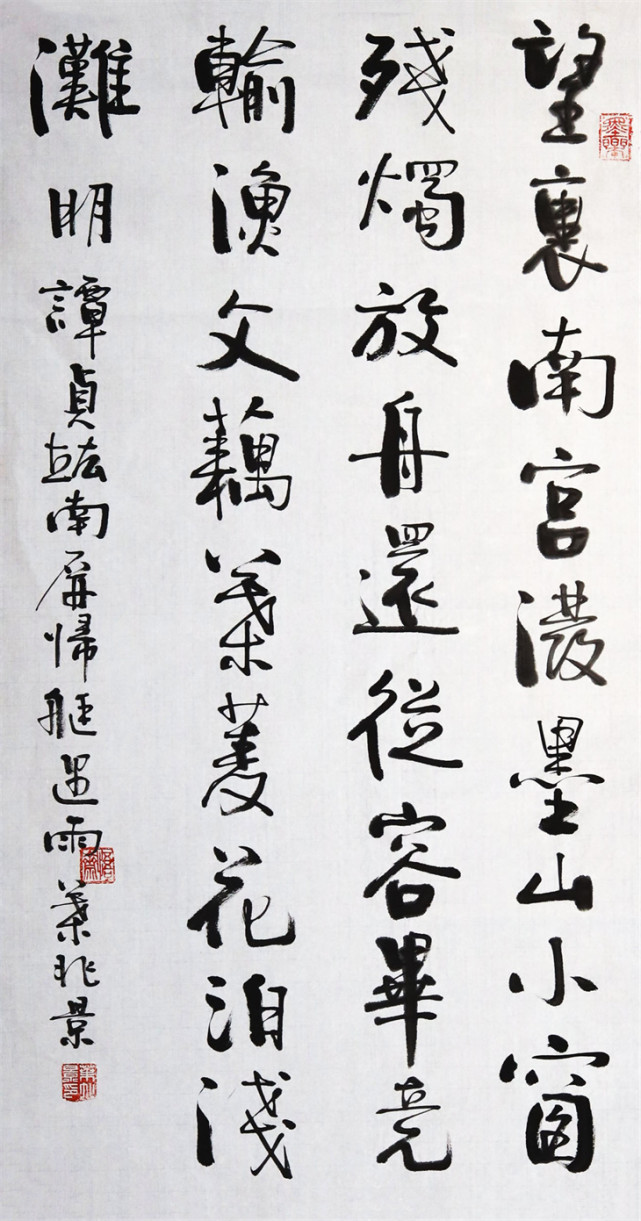 望裏南宮潑墨山小窗
殘燭放舟還從容畢竟
輸漁父藕葉菱花泊淺
灘明譚貞竑南屏歸艇遇雨葉兆景